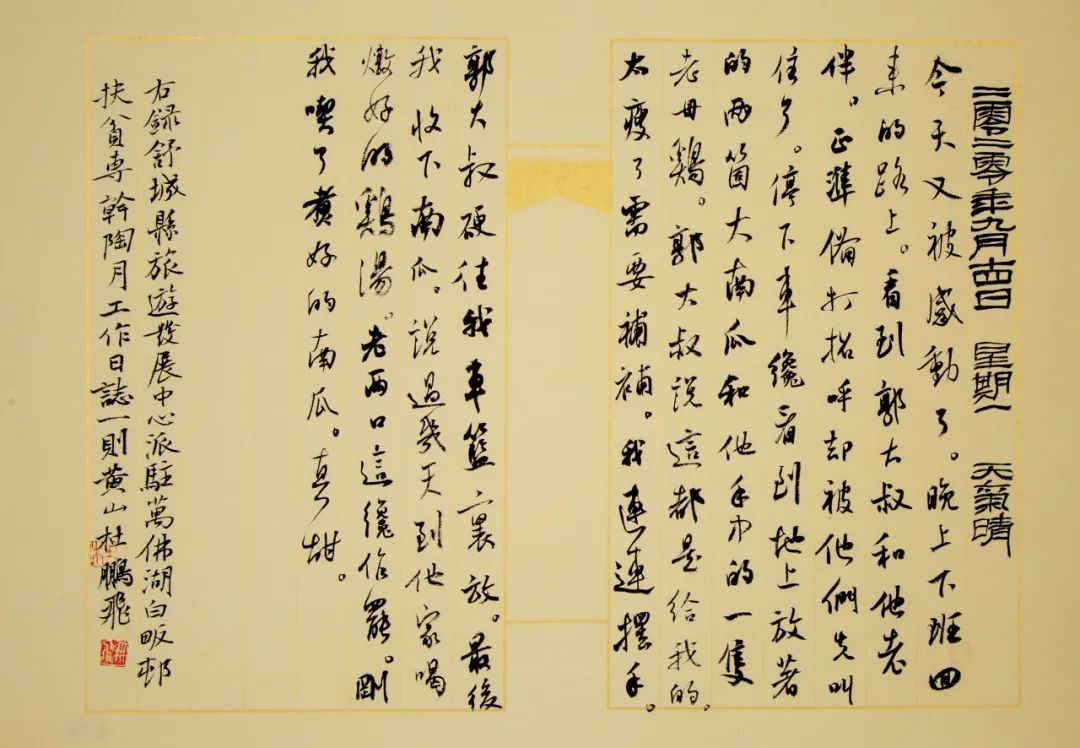 二零二零年九月十四日 星期一 天氣晴
今天又被感動了。晚上下班回
来的路上。看到郭大叔和他老
伴。正準備打招呼却被他們先叫
住了。停下車纔看到地上放著
的兩箇大南瓜和他手中的一隻
老母鷄。郭大叔説這都是給我的。
太瘦了需要補補。我連連擺手。
郭大叔硬往我車籃裏放。最後
我收下南瓜。説過幾天到他家喝
燉好的鷄湯。老兩口這纔作罷。剛
我喫了煮好的南瓜。真甜。
右録舒城縣旅遊發展中心派駐萬佛湖白畈邨
扶貧專幹陶月工作日誌一則黄山杜鵬飛